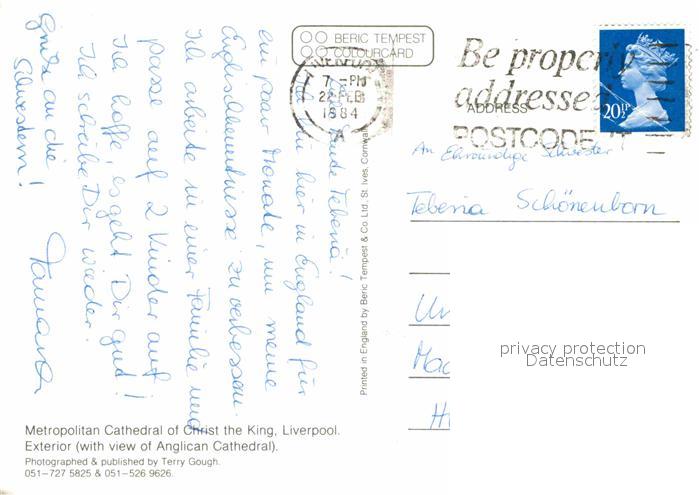 BERIC TEMPEST
COLOURCARD
LIVERPOOL
7 - PM
22 FEB
1984
A
Be properly
addressed
POSTCODE IT
20½P
ADDRESS
An Ehrwürdige Schwester
Teberia Schönenborn
Un
Mac
H
privacy protection
Datenschutz
Teberia!
bin hier in England für
ein paar Monate, um meine
Englischkenntnisse zu verbessern.
Ich arbeite in einer Familie und
passe auf 2 Kinder auf.
Ich hoffe, es geht Dir gut!
Ich schreibe Dir wieder.
Grüße an die
Schwestern!
Tamara
Printed in England by Beric Tempest & Co. Ltd., St. Ives, Cornwall
Metropolitan Cathedral of Christ the King, Liverpool.
Exterior (with view of Anglican Cathedral).
Photographed & published by Terry Gough.
051–727 5825 & 051–526 9626.